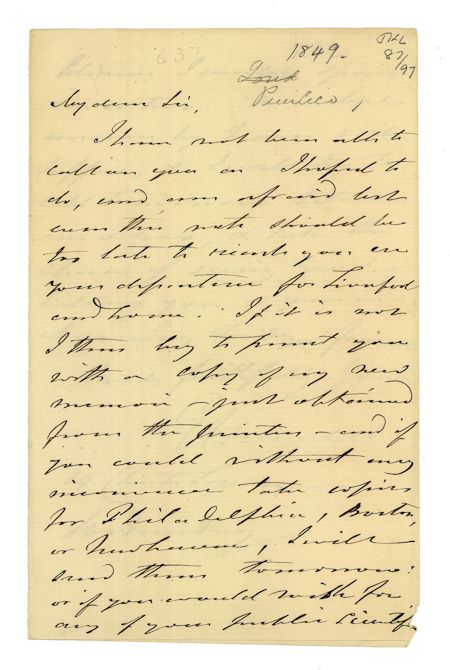 637
1849.
JHL
87/97
Pimlico,
My dear Sir,
I have not been able to
call on you as I hoped to
do, and am afraid lest
even this note should be
too late to reach you ere
your departure for Liverpool
and home. If it is not
I thus beg to present you
with a copy of my new
memoir – just obtained
from the printers – and if
you could without any
inconvenience take copies
for Philadelphia, Boston,
or Newhaven, I will
send them tomorrow:
or if you would wish for
any of your public Scientific